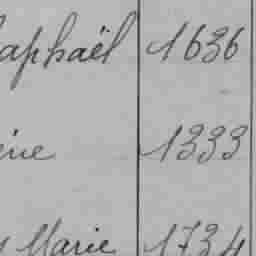 aphaël 1636
ène 1333
Marie 1734